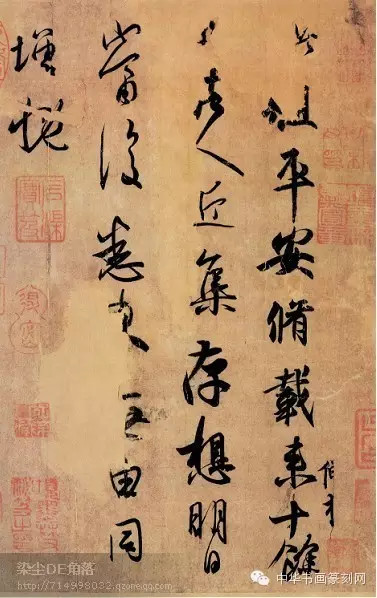 此粗平安脩載来十餘
日諸人近集存想明日
當復悉来無由同
增慨
染尘DE角落
http://714998032.qzone.qq.com
中华书画篆刻网